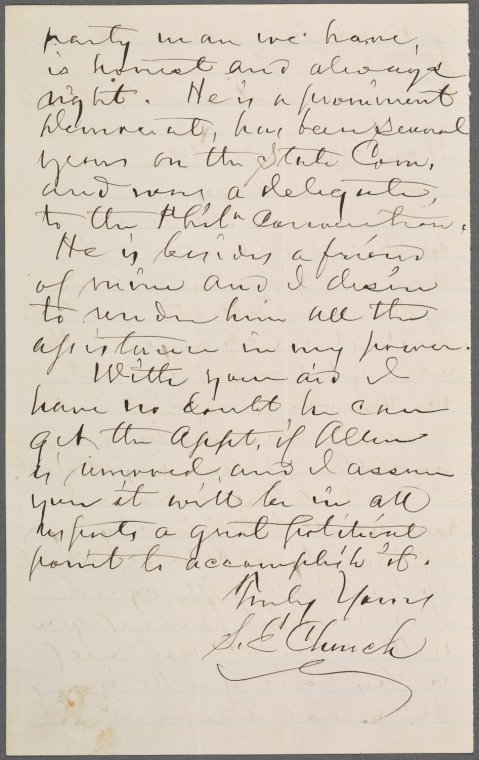 party man we have,
is honest and always
right. He is a prominent
Democrat, has been several
years on the State Com,
and was a delegate,
to the Phila Convention.
He is besides a friend
of mine and I desire
to render him all the
assistance in my power.
With your aid I
have no doubt he can
get the Appt, if Allen
is removed, and I assure
you it will be in all
respects a great political
point to accomplish it.
Truly Yours
S. E. Church